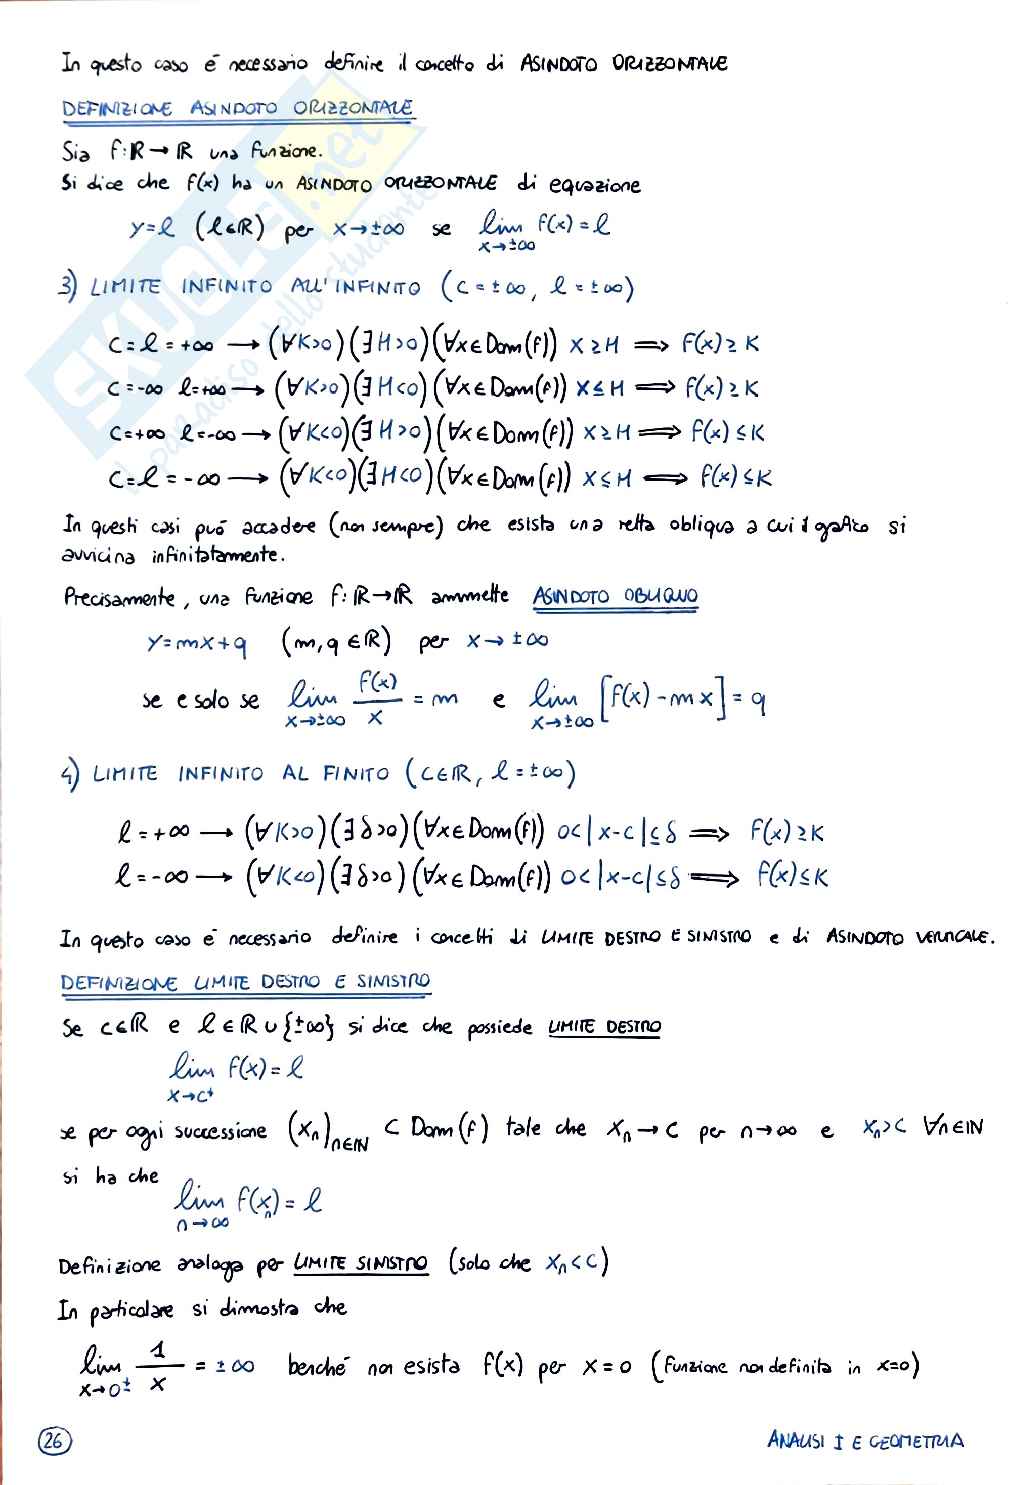 In questo caso é necessario definire il concetto di ASINDOTO ORIZZONTALE
DEFINIZIONE ASINDOTO ORIZZONTALE
Sia f: ℝ → ℝ una funzione.
Si dice che f(x) ha un ASINDOTO ORIZZONTALE di equazione
y = l (l ∈ ℝ) per x → ±∞ se lim x→±∞ f(x) = l
3) LIMITE INFINITO ALL'INFINITO (C = ±∞, l = ±∞)
C = l = +∞ → (∀K>0)(∃H>0)(∀x ∈ Dom(f)) x ≥ H ⟹ f(x) ≥ K
C = -∞ l = +∞ → (∀K>0)(∃H<0)(∀x ∈ Dom(f)) x ≤ H ⟹ f(x) ≥ K
C = +∞ l = -∞ → (∀K<0)(∃H>0)(∀x ∈ Dom(f)) x ≥ H ⟹ f(x) ≤ K
C = l = -∞ → (∀K<0)(∃H<0)(∀x ∈ Dom(f)) x ≤ H ⟹ f(x) ≤ K
In questi casi puó accadere (non sempre) che esista una retta obliqua a cui il grafico si
avvicina infinitatamente.
Precisamente, una funzione f: ℝ → ℝ ammette ASINDOTO OBLIQUO
y = mx + q (m, q ∈ ℝ) per x → ±∞
se e solo se lim x→±∞ f(x)/x = m e lim x→±∞ [f(x) - mx] = q
4) LIMITE INFINITO AL FINITO (C ∈ ℝ, l = ±∞)
l = +∞ → (∀K>0)(∃δ>0)(∀x ∈ Dom(f)) 0<|x-c| ≤ δ ⟹ f(x) ≥ K
l = -∞ → (∀K<0)(∃δ>0)(∀x ∈ Dom(f)) 0<|x-c| ≤ δ ⟹ f(x) ≤ K
In questo caso é necessario definire i concetti di LIMITE DESTRO E SINISTRO e di ASINDOTO VERTICALE.
DEFINIZIONE LIMITE DESTRO E SINISTRO
Se c ∈ ℝ e l ∈ ℝ ∪ {±∞} si dice che possiede LIMITE DESTRO
lim x→c⁺ f(x) = l
se per ogni successione (xₙ)n∈ℕ ⊂ Dom(f) tale che xₙ → c per n → ∞ e xₙ > c ∀n ∈ ℕ
si ha che
lim n→∞ f(xₙ) = l
Definizione analoga per LIMITE SINISTRO (solo che xₙ < c)
In particolare si dimostra che
lim x→0± 1/x = ±∞ benché non esista f(x) per x = 0 (funzione non definita in x=0)
26
ANALISI I E GEOMETRIA
SKUOLA.net
il paradiso dello studente